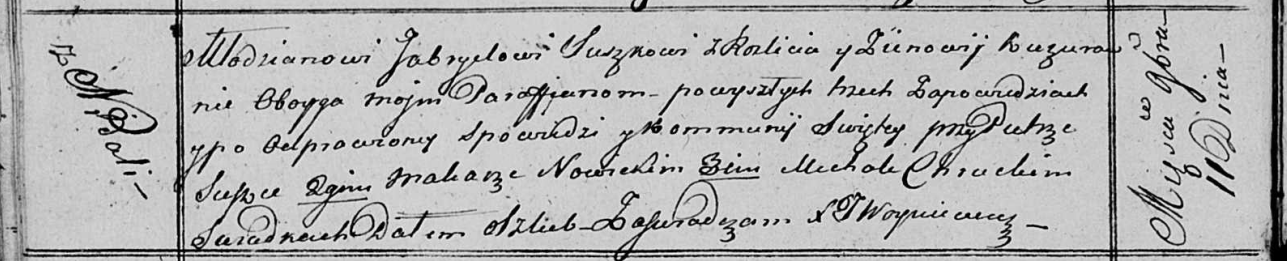 z Nidali
Młodzianowi Jabryelowi Suszkowi z Kozlicia y Zünowij Kuzuraw
nie Oboyga mojm Paraffjanom powyszłych trzech Zapowiedziach
ypo Odprawiony Spowiedzi y Kommunij Swiętey przy Pietrze
Suszce 2gim Makarze Nowickim 3cim Michale Chruckim
Swiadkach Dałem Szlub Zaswiadczam X J Woyniewicz
w
11 Dnia